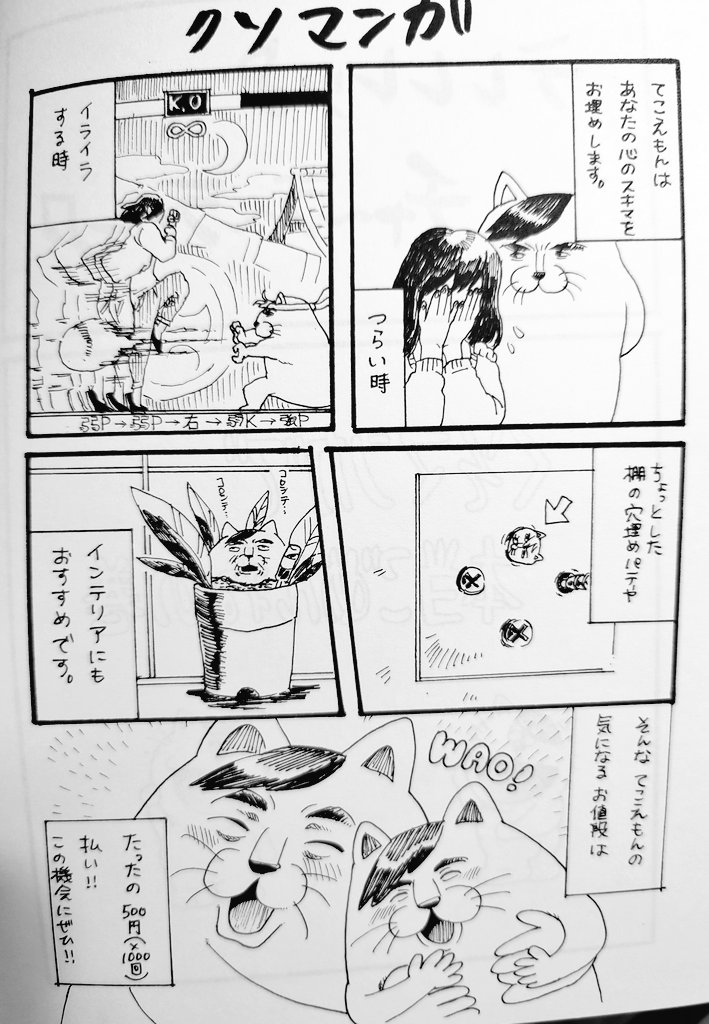 クソマンガ
てこえもんは
あなたの心のスキマを
お埋めします。
つらい時
イライラ
する時
K.O
∞
弱P→弱P→右→弱K→強P
ちょっとした
棚の穴埋めパテや
インテリアにも
おすすめです。
コロシテ…
コロシテ…
そんな てこえもんの
気になる お値段は
WAO!
たったの 500円(×1000回)
払い!!
この機会にぜひ!!